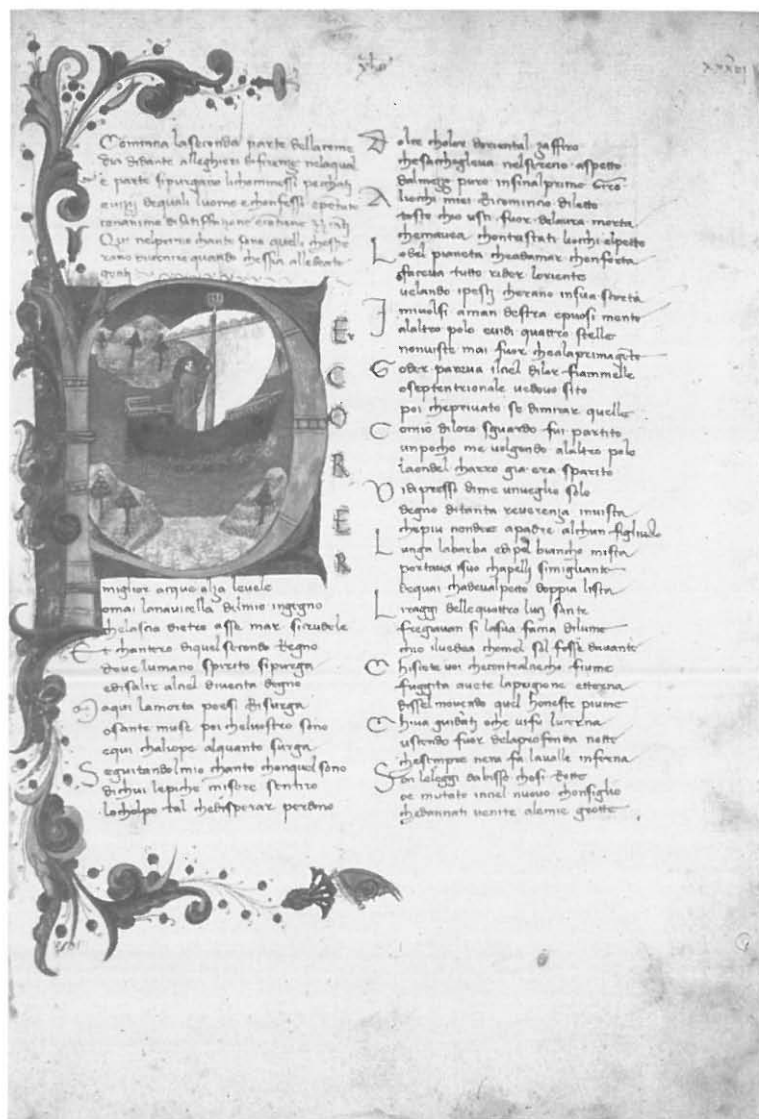 xxxvi
Comincia la seconda parte della come
dia didante alleghieri di firenze nelaqual
parte sipurgano lichommessi pechati
e vizij dequali luomo e chonfesso epentuto
conanimo di satisfazione econtiene
Qui nelprimo chante sono quelli che spe
rano divenire quando chessia alle beate
genti
P
Er
C
O
R
E
R
miglior acque alza levele
omai lanavicella delmio ingegno
chelascia dietro asse mar sicrudele
Et chantero diquel secondo regno
dove lumano spirito sipurga
edisalir alciel diventa degno
Maqui lamorta poesi risurga
osante muse poi chelvostro sono
equi chaliope alquanto surga
Seguitando lmio chanto chonquel sono
dichui lepiche misere sentiro
locholpo tal chedisperar perdono
Dolce cholor doriental zaffiro
chesachoglieva nelsereno aspetto
dalmezo puro infinalprimo Giro
Aliochi miei Ricomincio diletto
tosto chio usci fuor delaura morta
chemavea chontristati liochi elpetto
Lobel pianeta cheadamar chonforta
faceva tutto rider loriente
velando ipesci cherano insua scorta
Imivolsi aman destra eposi mente
alaltro polo evidi quattro stelle
nonviste mai fuor chealaprima gente
Goder pareva ilciel dilor fiammelle
osептentrionale vedovo sito
poi cheprivato se dimirar quelle
Comio diloro sguardo fui partito
unpocho me volgendo alaltro polo
laondel charro gia era sparito
Vidi presso dime unveglio solo
degno ditanta reverenza invista
chepiu nondee apadre alchun figliuolo
Lunga labarba edipel biancho mista
portava isuo chapelli simigliante
dequai chadeva alpetto doppia lista
Liraggi dellequattro luci sante
fregiavan si lasua facia dilume
chio ilvedea chomel sol fosse davante
Chisiete voi checontralciecho fiume
fuggita avete lapregione etterna
dissel movendo quel honeste piume
Chiva guidati oche vifu lucerna
uscendo fuor delaprofonda notte
chesempre nera fa lavalle inferna
Son leleggi dabisso chosi Rotte
oe mutato inciel nuovo chonsiglio
chedannati venite alemie grotte